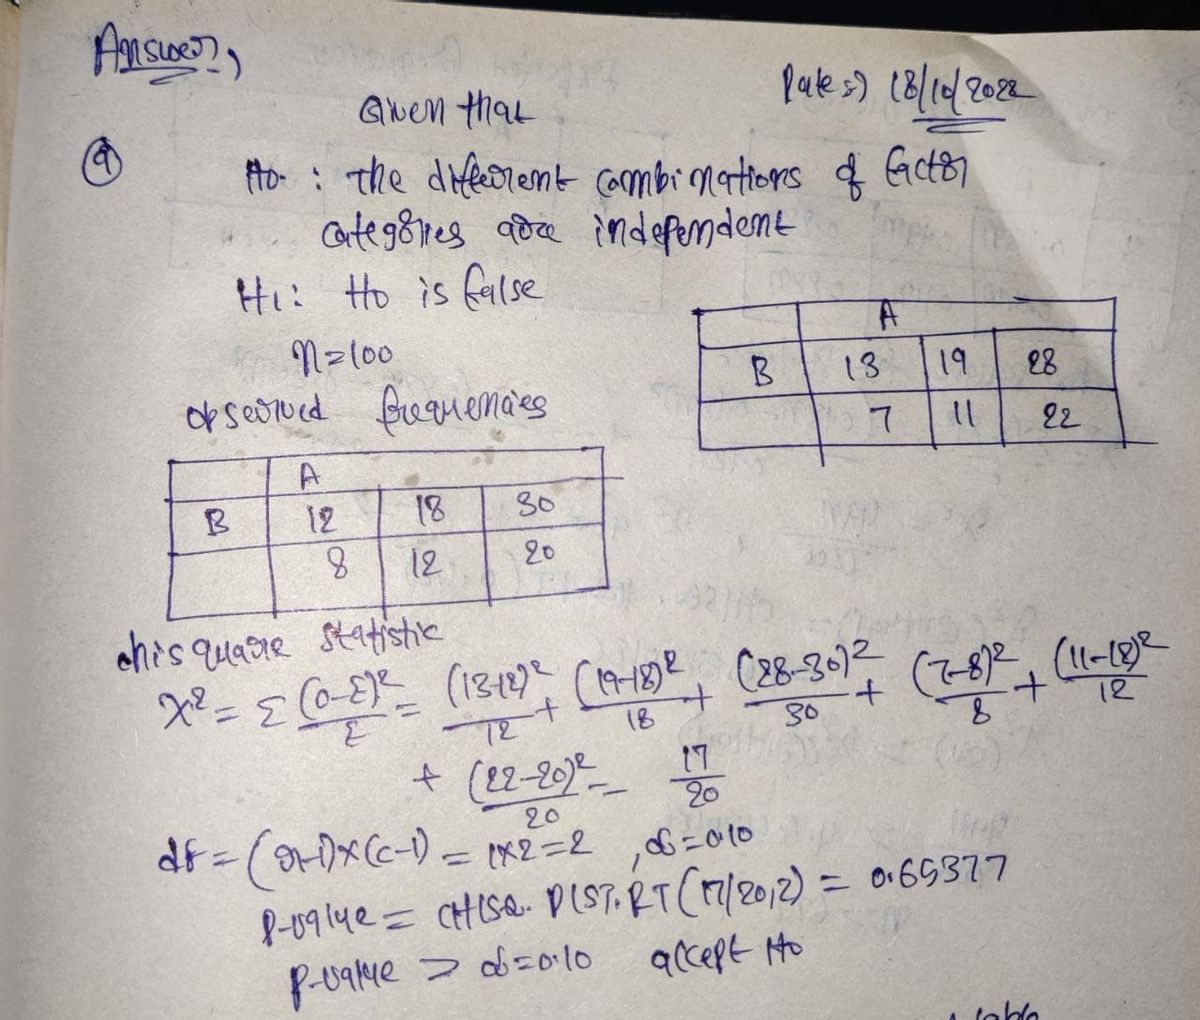 Answer,
Date :) 18/10/2022
Given that
a
Ho : The different combinations of factor
categories are independent
H1: Ho is false
n=100
A
B 13 19 28
7 11 22
observed frequencies
A
B 12 18 30
8 12 20
chisquare statistic
χ² = Σ (O-E)²/E = (13-12)²/12 + (19-18)²/18 + (28-30)²/30 + (7-8)²/8 + (11-12)²/12
+ (22-20)²/20 = 17/20
df = (r-1)x(c-1) = 1x2=2 , α=0.10
P-value = CHISQ. DIST. RT (17/20,2) = 0.65377
P-value > α=0.10 accept Ho